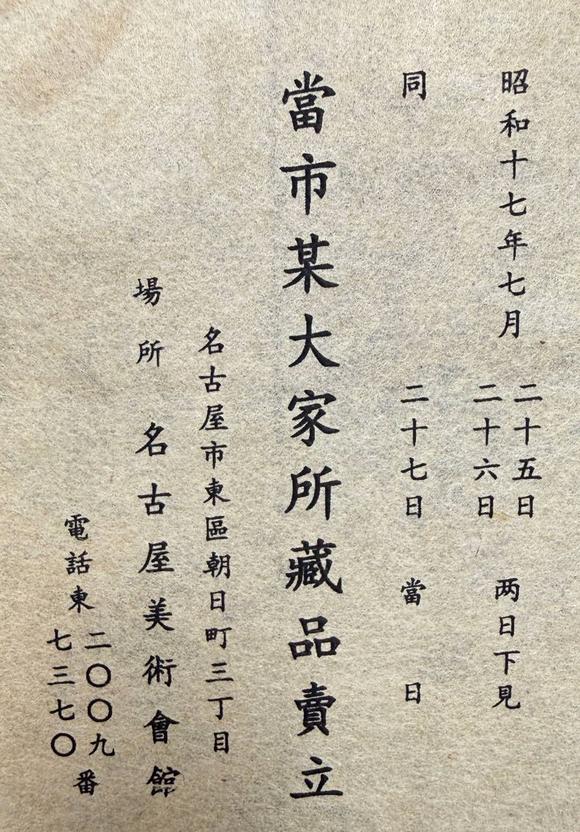 昭和十七年七月
二十五日
二十六日
两日下見
同
二十七日
當日
當市某大家所藏品賣立
名古屋市東區朝日町三丁目
場所 名古屋美術會館
電話東
二〇〇九
七三七〇
番